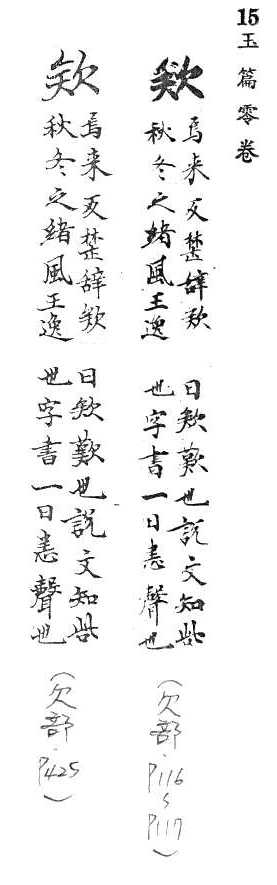 15 玉篇零卷
欸
烏来反楚辝欸
秋冬之緒風王逸
曰欸歎也説文知呰
也字書一曰恚聲也
(欠部・P116〜P117)
欸
烏来反楚辝欸
秋冬之緒風王逸
曰欸歎也説文知呰
也字書一曰恚聲也
(欠部・P425)